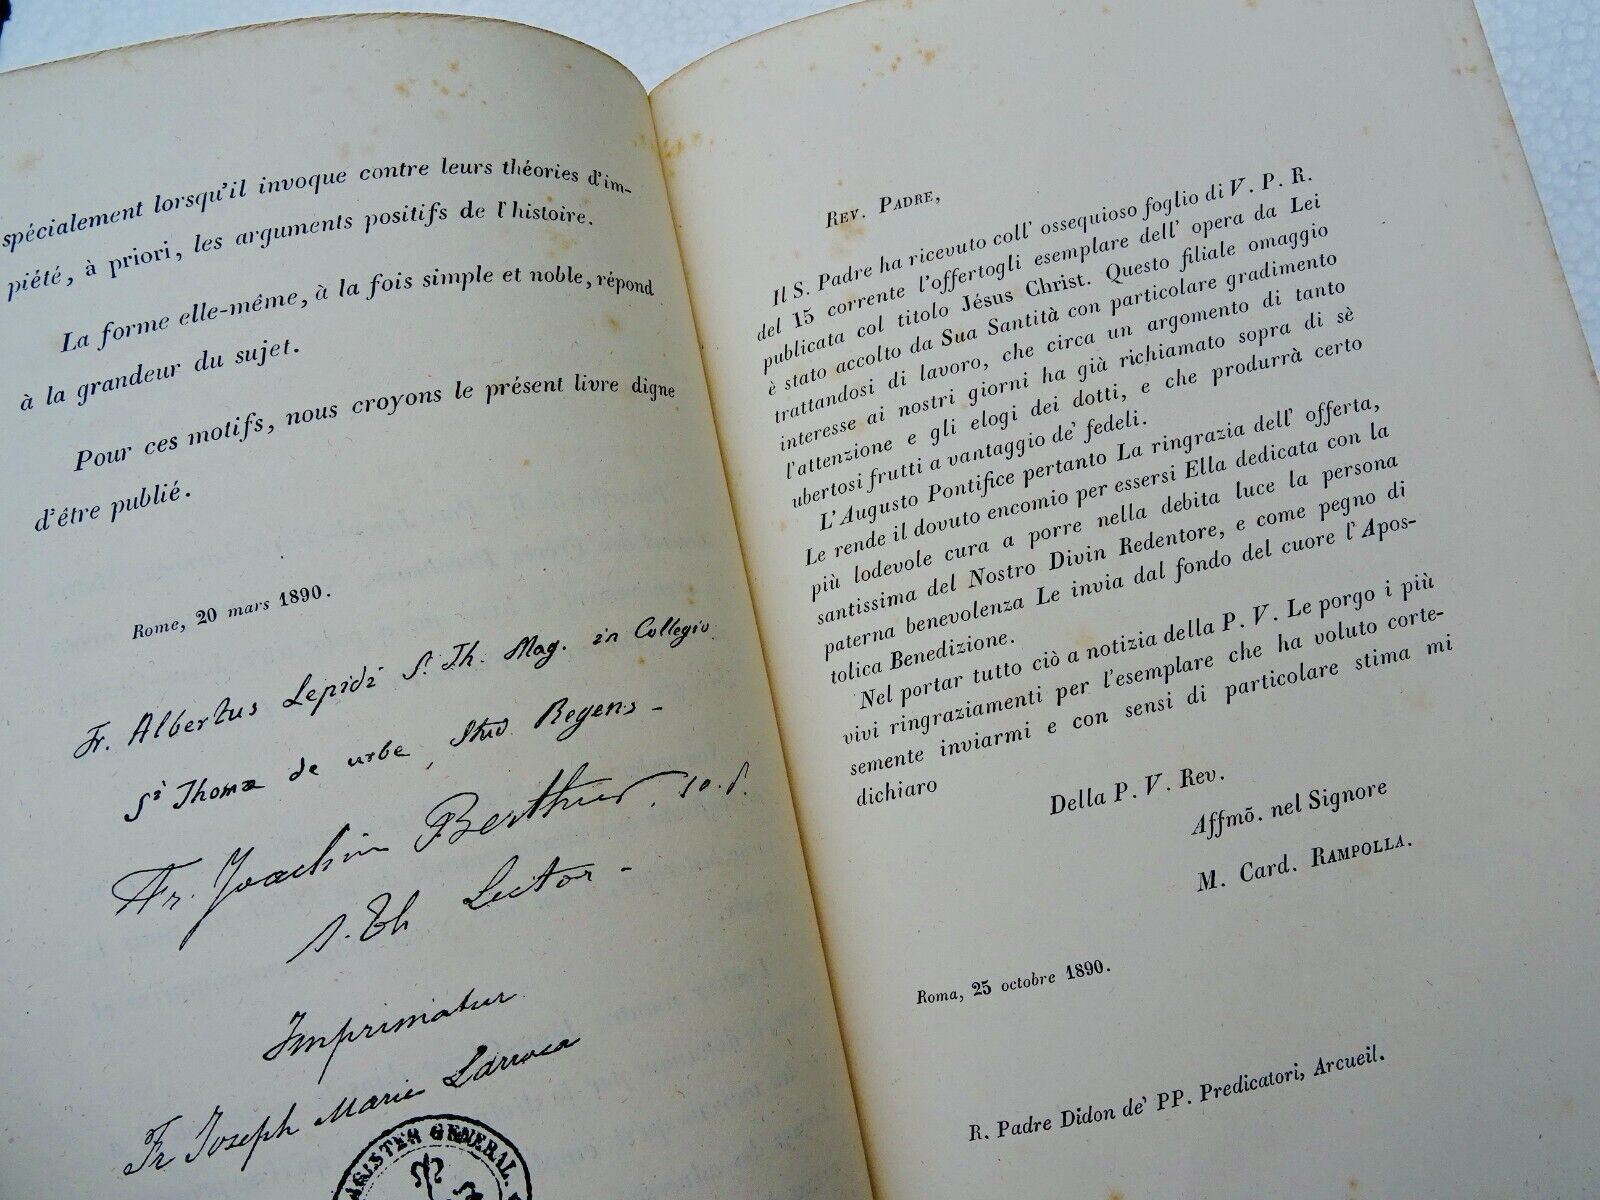 spécialement lorsqu'il invoque contre leurs théories d'im-
piété, à priori, les arguments positifs de l'histoire.
La forme elle-même, à la fois simple et noble, répond
à la grandeur du sujet.
Pour ces motifs, nous croyons le présent livre digne
d'être publié.
Rome, 20 mars 1890.
Fr. Albertus Lepidi S. Th. Mag. in Collegio
Sti Thomæ de urbe, Stud Regens-
Fr. Joachim Berthier, s. o. p.
s. Th Lector-
Imprimatur
Fr Joseph Marie Larroca
MAGISTER GENERAL.
REV. PADRE,
Il S. Padre ha ricevuto coll' ossequioso foglio di V. P. R.
del 15 corrente l'offertogli esemplare dell' opera da Lei
publicata col titolo Jésus Christ. Questo filiale omaggio
è stato accolto da Sua Santità con particolare gradimento
trattandosi di lavoro, che circa un argomento di tanto
interesse ai nostri giorni ha già richiamato sopra di sè
l'attenzione e gli elogi dei dotti, e che produrrà certo
ubertosi frutti a vantaggio de' fedeli.
L'Augusto Pontifice pertanto La ringrazia dell' offerta,
Le rende il dovuto encomio per essersi Ella dedicata con la
più lodevole cura a porre nella debita luce la persona
santissima del Nostro Divin Redentore, e come pegno di
paterna benevolenza Le invia dal fondo del cuore l'Apos-
tolica Benedizione.
Nel portar tutto ciò a notizia della P. V. Le porgo i più
vivi ringraziamenti per l'esemplare che ha voluto corte-
semente inviarmi e con sensi di particolare stima mi
dichiaro
Della P. V. Rev.
Affmō. nel Signore
M. Card. RAMPOLLA.
Roma, 25 octobre 1890.
R. Padre Didon de' PP. Predicatori, Arcueil.